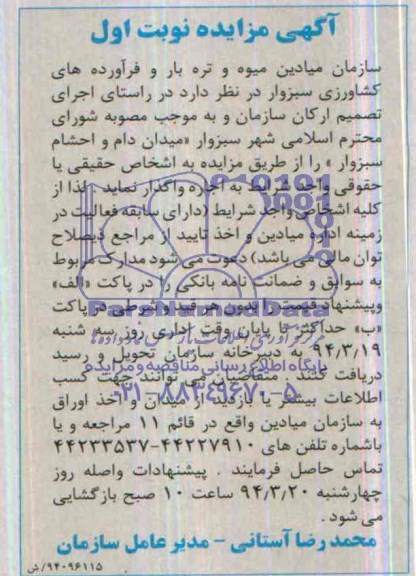 آگهی مزایده نوبت اول
سازمان میادین میوه و تره بار و فرآورده های
کشاورزی سبزوار در نظر دارد در راستای اجرای
تصمیم ارکان سازمان و به موجب مصوبه شورای
محترم اسلامی شهر سبزوار «میدان دام و احشام
سبزوار » را از طریق مزایده به اشخاص حقیقی یا
حقوقی واجد شرایط به اجاره واگذار نماید . لذا از
کلیه اشخاص واجد شرایط (دارای سابقه فعالیت در
زمینه اداره میادین و اخذ تایید از مراجع ذیصلاح
توان مالی می باشد) دعوت می شود مدارک مربوط
به سوابق و ضمانت نامه بانکی را در پاکت «الف»
وپیشنهاد قیمت را بدون هر قید و شرطی در پاکت
«ب» حداکثر تا پایان وقت اداری روز سه شنبه
۹۴/۳/۱۹ به دبیرخانه سازمان تحویل و رسید
دریافت کنند . متقاضیان می توانند جهت کسب
اطلاعات بیشتر یا بازدید از میدان و اخذ اوراق
به سازمان میادین واقع در قائم ۱۱ مراجعه و یا
باشماره تلفن های ۴۴۲۲۷۹۱۰-۴۴۲۲۳۵۳۷
تماس حاصل فرمایند . پیشنهادات واصله روز
چهارشنبه ۹۴/۳/۲۰ ساعت ۱۰ صبح بازگشایی
می شود .
محمد رضا آستانی - مدیر عامل سازمان
۹۴۰۹۶۱۱۵/ش
ParsNamadData
پایگاه اطلاع رسانی مناقصه و مزایده
۰۲۱-۸۸۳۴۹۶۷۰-۵